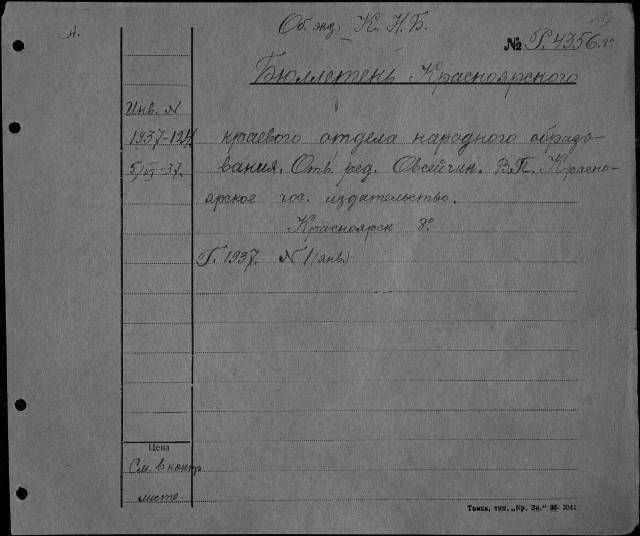 А.
Об. энд. К. Н. Б.
№ Г. 4356. 8°
Бюллетень Красноярского
Инв. N
1937-124 краевого отдела народного образо-
5/VI-37. вания. Отв. ред. Овсейчин. В.П. Красно-
ярское гос. издательство.
Красноярск 8°
Г. 1937. N 1 (янв.)
Цена
См. в контр.
листе
Томск, тип. „Кр. Зн.“ 3041